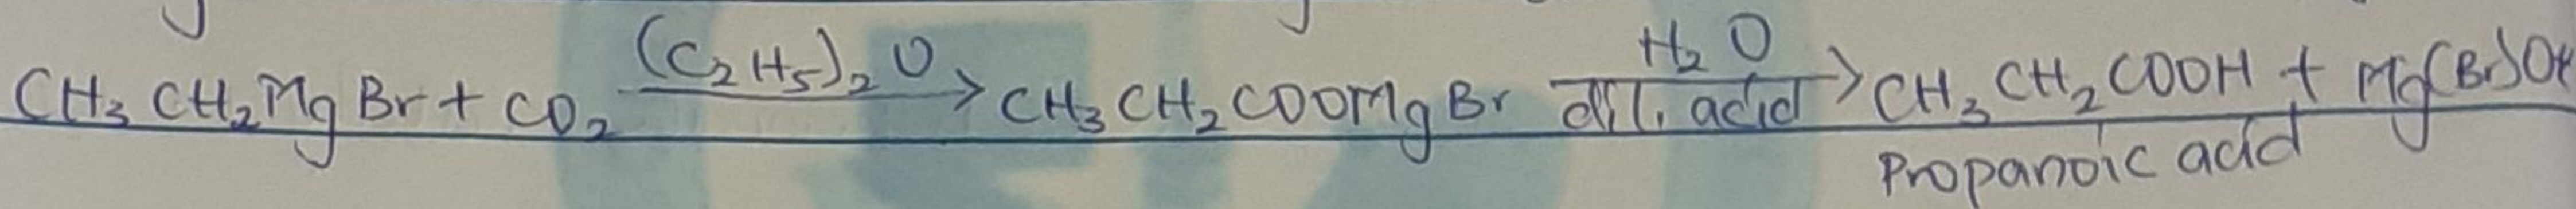 CH₃CH₂MgBr + CO₂ —(C₂H₅)₂O→ CH₃CH₂COOMgBr —H₂O / dil. acid→ CH₃CH₂COOH + Mg(Br)OH
Propanoic acid